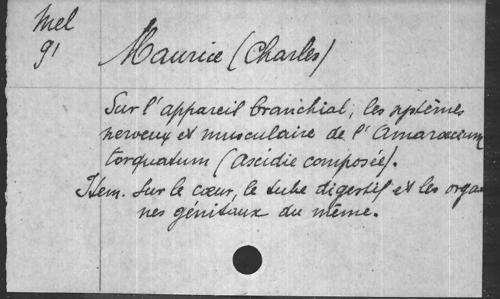 Mel
91 Maurice (Charles)
Sur l'appareil branchial; les systèmes
nerveux et musculaire de l'Amaroecium
torquatum (Ascidie composée).
Item. Sur le cœur, le tube digestif et les orga
nes génitaux du même.